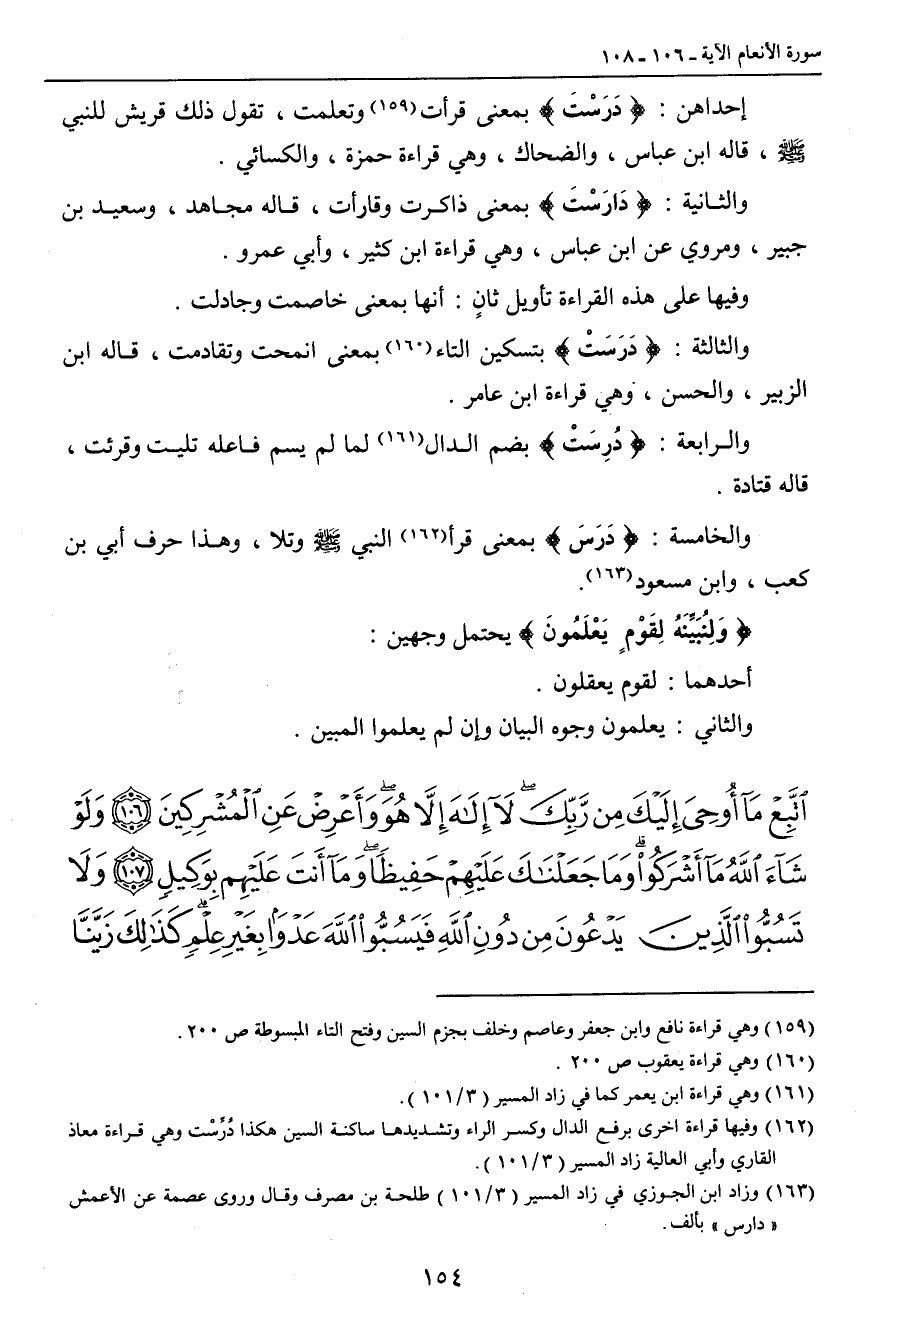 سورة الأنعام الآية ـ ١٠٦ ـ ١٠٨
إحداهن : ﴿ دَرَسْتَ ﴾ بمعنى قرأت(١٥٩) وتعلمت ، تقول ذلك قريش للنبي
ﷺ ، قاله ابن عباس ، والضحاك ، وهي قراءة حمزة ، والكسائي .
والثانية : ﴿ دَارَسْتَ ﴾ بمعنى ذاكرت وقارأت ، قاله مجاهد ، وسعيد بن
جبير ، ومروي عن ابن عباس ، وهي قراءة ابن كثير ، وأبي عمرو .
وفيها على هذه القراءة تأويل ثانٍ : أنها بمعنى خاصمت وجادلت .
والثالثة : ﴿ دَرَسَتْ ﴾ بتسكين التاء(١٦٠) بمعنى انمحت وتقادمت ، قاله ابن
الزبير ، والحسن ، وهي قراءة ابن عامر .
والرابعة : ﴿ دُرِسَتْ ﴾ بضم الدال(١٦١) لما لم يسم فاعله تليت وقرئت ،
قاله قتادة .
والخامسة : ﴿ دَرَسَ ﴾ بمعنى قرأ(١٦٢) النبي ﷺ وتلا ، وهذا حرف أبي بن
كعب ، وابن مسعود(١٦٣).
﴿ وَلِنُبَيِّنَهُ لِقَوْمٍ يَعْلَمُونَ ﴾ يحتمل وجهين :
أحدهما : لقوم يعقلون .
والثاني : يعلمون وجوه البيان وإن لم يعلموا المبين .
ٱتَّبِعْ مَآ أُوحِىَ إِلَيْكَ مِن رَّبِّكَ ۖ لَآ إِلَٰهَ إِلَّا هُوَ ۖ وَأَعْرِضْ عَنِ ٱلْمُشْرِكِينَ ١٠٦ وَلَوْ
شَآءَ ٱللَّهُ مَآ أَشْرَكُوا۟ ۗ وَمَا جَعَلْنَٰكَ عَلَيْهِمْ حَفِيظًا ۖ وَمَآ أَنتَ عَلَيْهِم بِوَكِيلٍ ١٠٧ وَلَا
تَسُبُّوا۟ ٱلَّذِينَ يَدْعُونَ مِن دُونِ ٱللَّهِ فَيَسُبُّوا۟ ٱللَّهَ عَدْوًۢا بِغَيْرِ عِلْمٍ ۗ كَذَٰلِكَ زَيَّنَّا
(١٥٩) وهي قراءة نافع وابن جعفر وعاصم وخلف بجزم السين وفتح التاء المبسوطة ص ٢٠٠ .
(١٦٠) وهي قراءة يعقوب ص ٢٠٠ .
(١٦١) وهي قراءة ابن يعمر كما في زاد المسير ( ٣/ ١٠١ ).
(١٦٢) وفيها قراءة اخرى برفع الدال وكسر الراء وتشديدها ساكنة السين هكذا دُرِّسْت وهي قراءة معاذ
القاري وأبي العالية زاد المسير ( ٣/ ١٠١ ).
(١٦٣) وزاد ابن الجوزي في زاد المسير ( ٣/ ١٠١ ) طلحة بن مصرف وقال وروى عصمة عن الأعمش
« دارس » بألف.
١٥٤